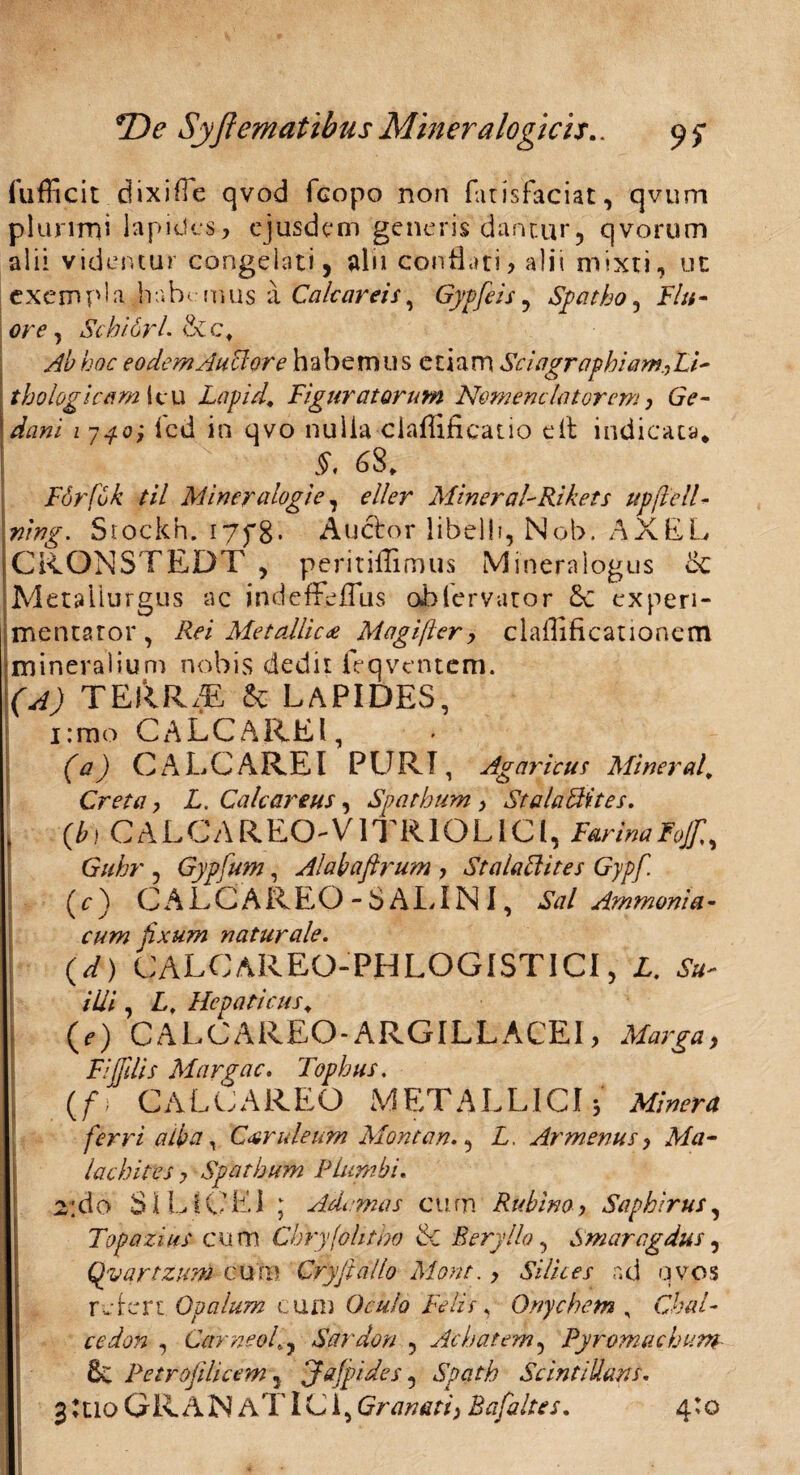 De Syſtematibus Mineralogicis.. 95
ſufficit dixiſſe qvod ſcopo non ſatisfaciat, qvum
plurimi lapides, ejusdem generis dantur, qvorum
alii videntur congelati, alii conflati, alii mixti, ut
exempla habemus à Calcareis, Gypſeis, Spatho, Flu-
ore, Schiörl. &c,
Ab hoc eodem Auctore habemus etiam Sciagraphiam, Li-
thologicam ſeu Lapid. Figuratorum Nomenclatorem, Ge-
dani 1740; ſed in qvo nulla claſſificatio eſt indicata.
§. 68.
Förſök til Mineralogie, eller Mineral-Rikets upſtell-
ning. Stockh. 1758. Auctor libelli, Nob. AXEL
CRONSTEDT, peritiſſimus Mineralogus &
Metallurgus ac indeffeſſus obſervator & experi-
mentator, Rei Metallicæ Magiſter, claſſificationem
mineralium nobis dedit ſeqventem.
(A) TERRÆ & LAPIDES,
1:mo CALCAREI,
(a) CALCAREI PURI, Agaricus Mineral.
Creta, L. Calcareus, Spathum, Stalactites.
(b) CALCAREO-VITRIOLICI, Farina Foſſ.,
Guhr, Gypſum, Alabaſtrum, Stalactites Gypſ.
(c) CALCAREO-SALINI, Sal Ammonia-
cum fixum naturale.
(d) CALCAREO-PHLOGISTICI, L. Su-
illi, L. Hepaticus.
(e) CALCAREO-ARGILLACEI, Marga,
Fiſſilis Margac. Tophus.
(f) CALCAREO METALLICI; Minera
ferri alba, Cæruleum Montan., L. Armenus, Ma-
lachites, Spathum Plumbi.
2:do SILICEI; Adamas cum Rubino, Saphirus,
Topazius cum Chryſolitho & Beryllo, Smaragdus,
Qvartzum cum Cryſtallo Mont., Silices ad qvos
refert Opalum cum Oculo Felis, Onychem, Chal-
cedon, Carneol., Sardon, Achatem, Pyromachum
& Petroſilicem, Jaſpides, Spath Scintillans.
3:tio GRANATICI, Granati, Baſaltes. 4:o